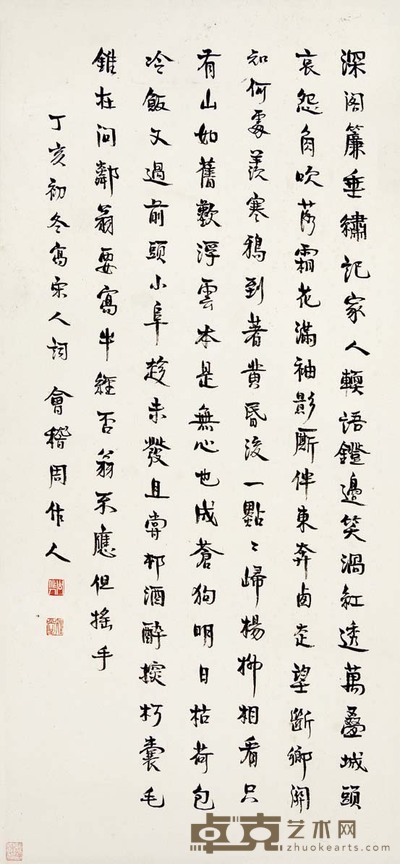 深閣簾垂繡記家人輭語鐙邊笑渦紅透萬疊城頭
哀怨角吹落霜花滿袖影廝伴東奔卤走望斷鄉關
知何處羨寒鴉到著黃昏後一點〻歸楊柳相看只
有山如舊歎浮雲本是無心也成蒼狗明日枯荷包
冷飯又過前頭小阜趁未發且嘗邨酒醉探枵囊毛
錐在問鄰翁要寫牛經否翁不應但搖手
丁亥初冬寫宋人詞 會稽周作人
卓克艺术网
zhuokearts.com